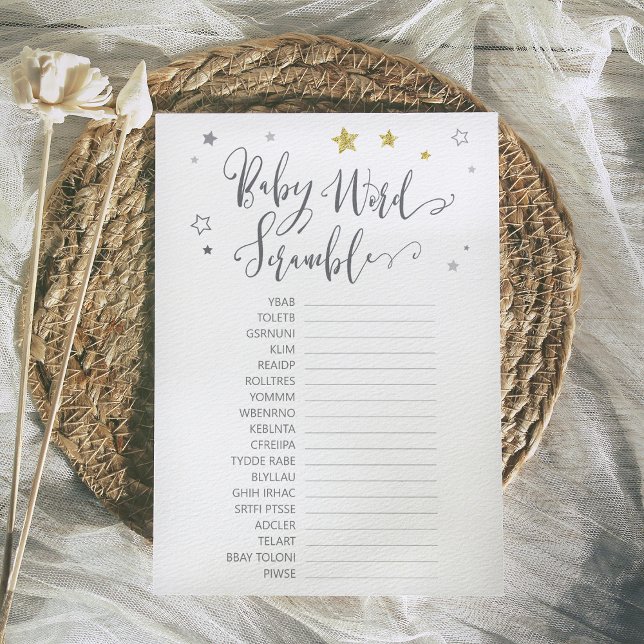 Baby Word
Scramble
YBAB
TOLETB
GSRNUNI
KLIM
REAIDP
ROLLTRES
YOMMM
WBENRNO
KEBLNTA
CFREIIPA
TYDDE RABE
BLYLLAU
GHIH IRHAC
SRTFI PTSSE
ADCLER
TELART
BBAY TOLONI
PIWSE